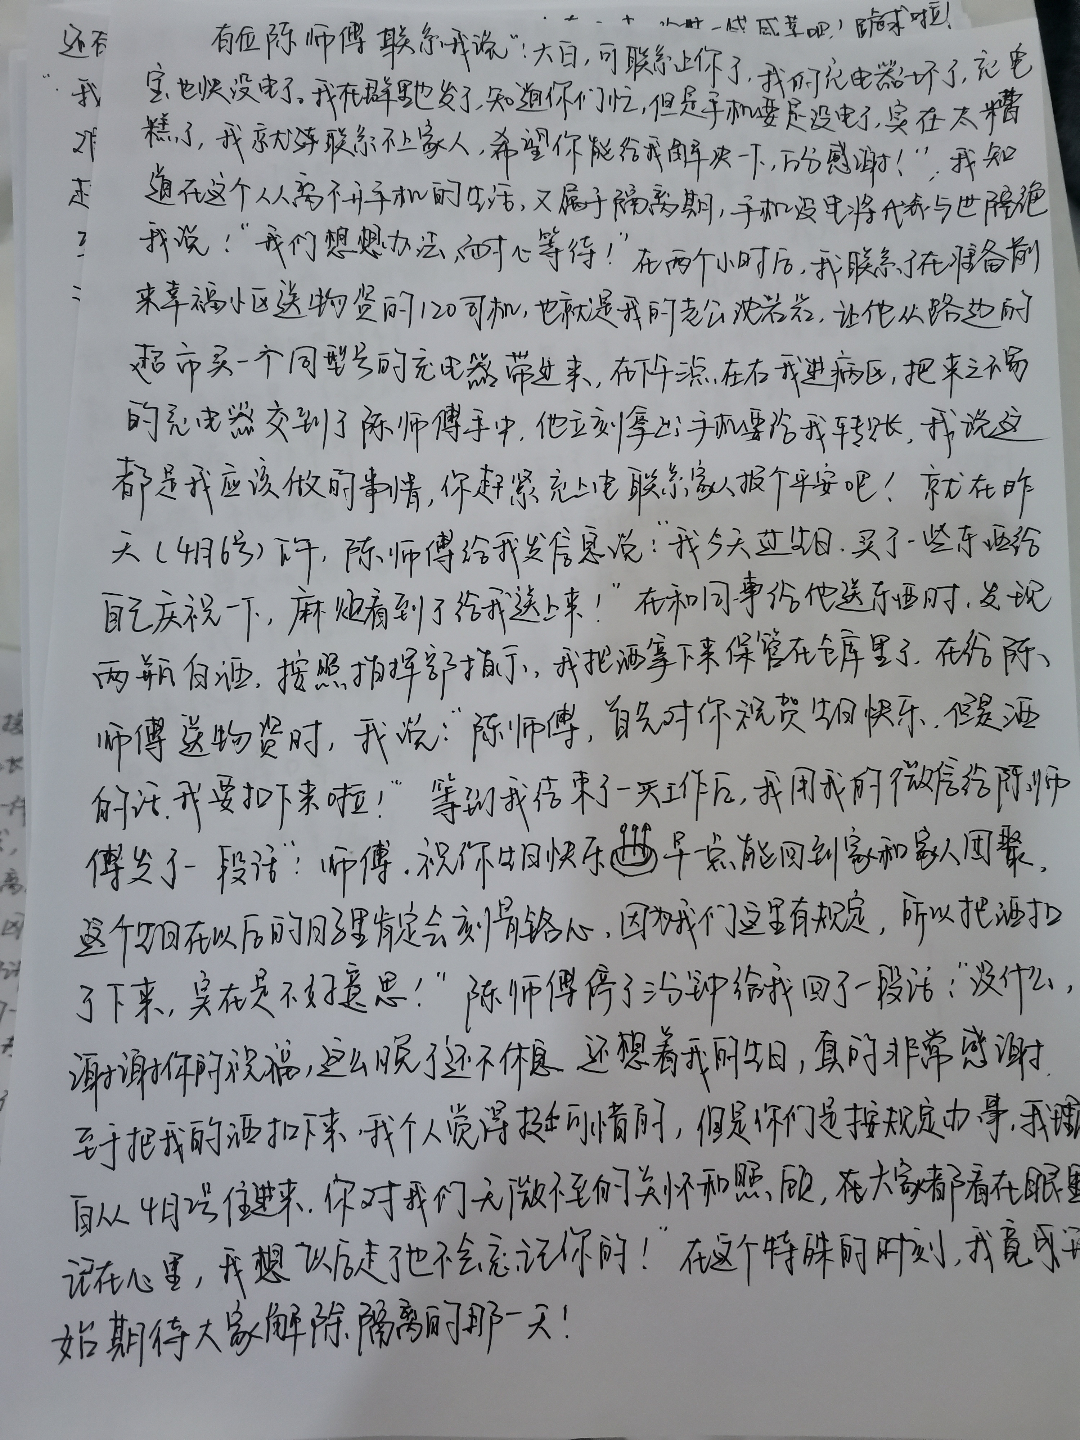 有位陈师傅联系我说“:大白,可联系上你了,我的充电器坏了,充电
宝也快没电了。我在群里也发了,知道你们忙,但是手机要是没电了,实在太糟
糕了,我就连联系不上家人,希望你能给我解决一下,万分感谢!”,我知
道在这个人人离不开手机的生活,又属于隔离期,手机没电将代表与世隔绝
我说!“我们想想办法,耐心等待!”在两个小时后,我联系了在准备前
来幸福小区送物资的120司机,也就是我的老公沈岩岩,让他从路边的
超市买一个同型号的充电器带进来,在下午 点左右我进病区,把来之不易
的充电器交到了陈师傅手中,他立刻拿出手机要给我转账,我说这
都是我应该做的事情,你赶紧充上电联系家人报个平安吧!就在昨
天(4月6号)下午,陈师傅给我发信息说:“我今天过生日,买了一些东西给
自己庆祝一下,麻烦看到了给我送上来!”在和同事给他送东西时,发现
两瓶白酒,按照指挥部指示,我把酒拿下来保管在仓库里了,在给陈
师傅送物资时,我说:“陈师傅,首先对你祝贺生日快乐,但是酒
的话,我要扣下来啦!”等到我结束了一天工作后,我用我的微信给陈师
傅发了一段话“:师傅,祝你生日快乐 早点能回到家和家人团聚,
这个生日在以后的日子里肯定会刻骨铭心,因为我们这里有规定,所以把酒扣
了下来,实在是不好意思!”陈师傅停了 分钟给我回了一段话:“没什么,
谢谢你的祝福,这么晚了还不休息 还想着我的生日,真的非常感谢.
至于把我的酒扣下来,我个人觉得挺可惜的,但是你们是按规定办事,我理
自从4月2号住进来,你对我们无微不至的关怀和照顾,在大家都看在眼里
记在心里,我想“以后走了也不会忘记你的!”在这个特殊的时刻,我竟然开
始期待大家解除隔离的那一天!